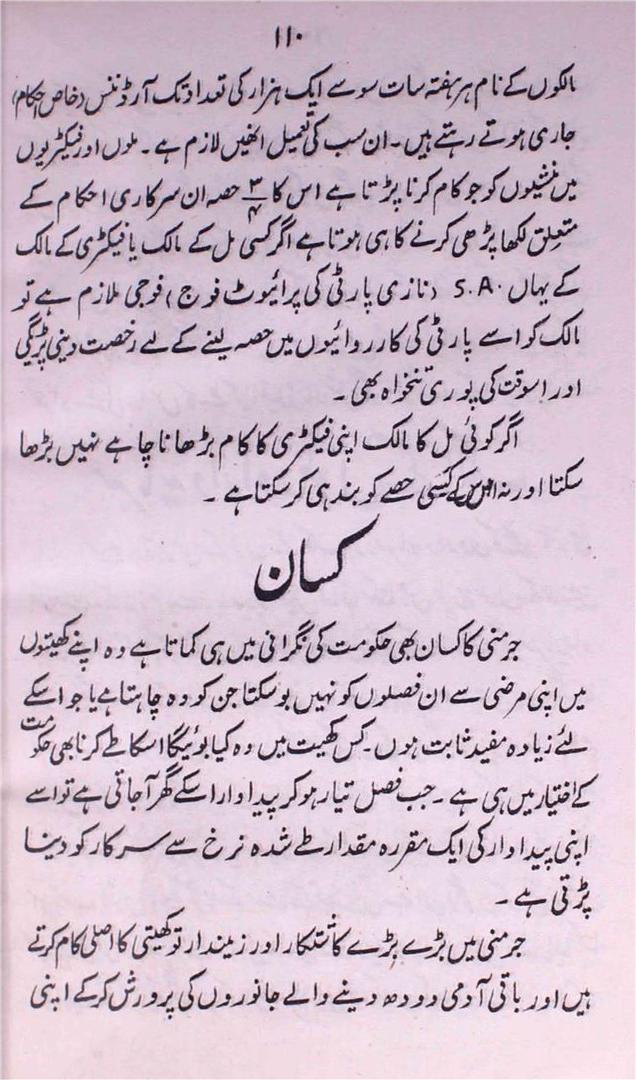 ۱۱۰
مالکوں کے نام ہر ہفتہ سات سو سے ایک ہزار کی تعداد تک آرڈننس (خاص احکام)
جاری ہوتے رہتے ہیں۔ ان سب کی تعمیل انھیں لازم ہے۔ ملوں اور فیکٹریوں
میں منشیوں کو جو کام کرنا پڑتا ہے اس کا ۳/۴ حصہ ان سرکاری احکام کے
متعلق لکھا پڑھی کرنے کا ہی ہوتا ہے اگر کسی مل کے مالک یا فیکٹری کے مالک
کے یہاں S.A. (نازی پارٹی کی پرائیوٹ فوج) فوجی ملازم ہے تو
مالک کو اسے پارٹی کی کارروائیوں میں حصہ لینے کے لیے رخصت دینی پڑیگی
اور اسوقت کی پوری تنخواہ بھی۔
اگر کوئی مل کا مالک اپنی فیکٹری کا کام بڑھانا چاہے نہیں بڑھا
سکتا اور نہ اس کے کسی حصے کو بند ہی کر سکتا ہے۔
کسان
جرمنی کا کسان بھی حکومت کی نگرانی میں ہی کماتا ہے وہ اپنے کھیتوں
میں اپنی مرضی سے ان فصلوں کو نہیں بو سکتا جن کو وہ چاہتا ہے یا جو اسکے
لئے زیادہ مفید ثابت ہوں۔ کس کھیت میں وہ کیا بوئیگا اسکا طے کرنا بھی حکومت
کے اختیار میں ہی ہے۔ جب فصل تیار ہو کر پیداوار اسکے گھر آ جاتی ہے تو اسے
اپنی پیداوار کی ایک مقررہ مقدار طے شدہ نرخ سے سرکار کو دینا
پڑتی ہے۔
جرمنی میں بڑے بڑے کاشتکار اور زمیندار تو کھیتی کا اصلی کام کرتے
ہیں اور باقی آدمی دودھ دینے والے جانوروں کی پرورش کر کے اپنی